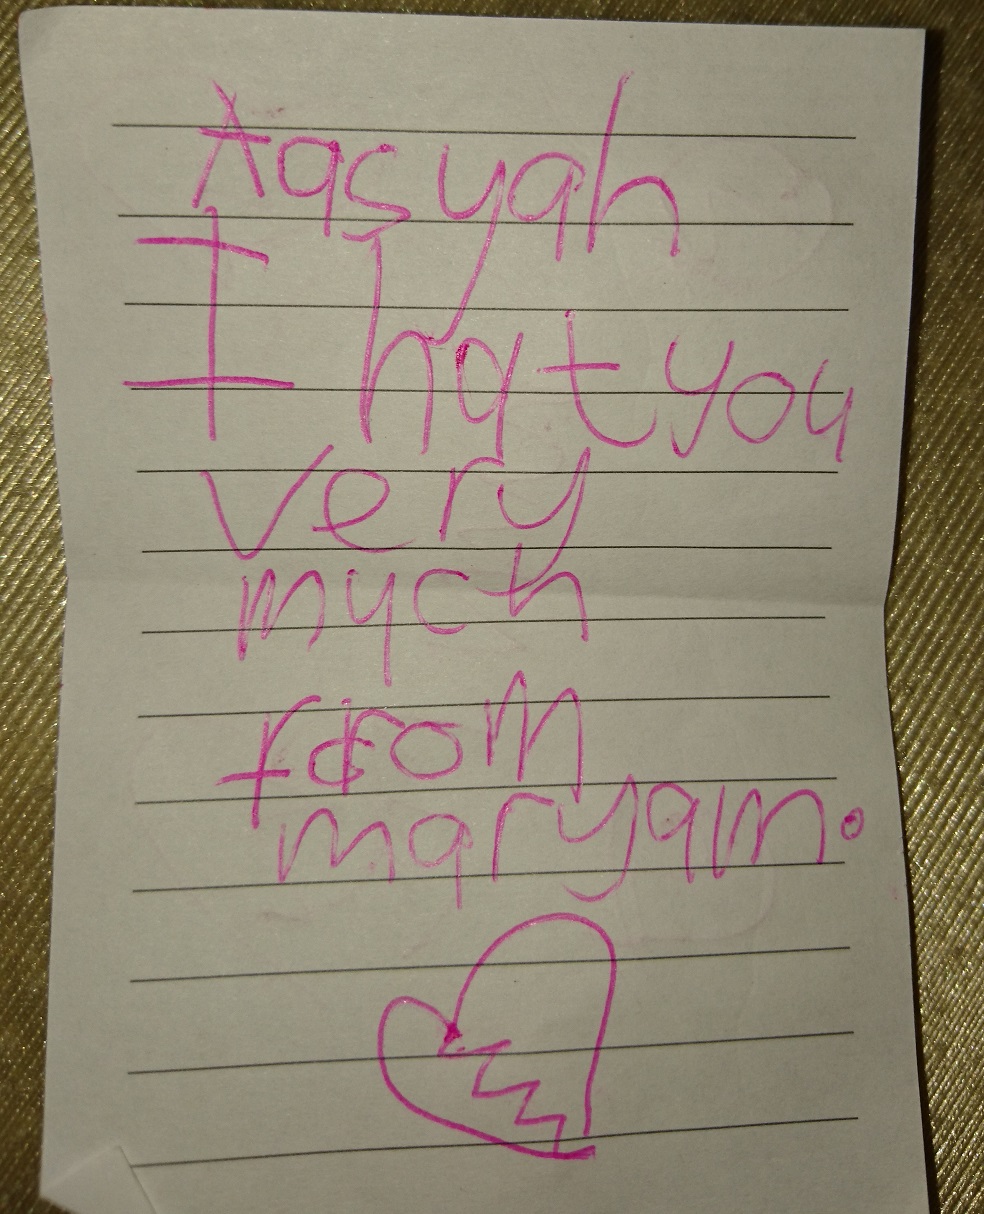 Aasyah
I hat you
very
much
from
maryam.